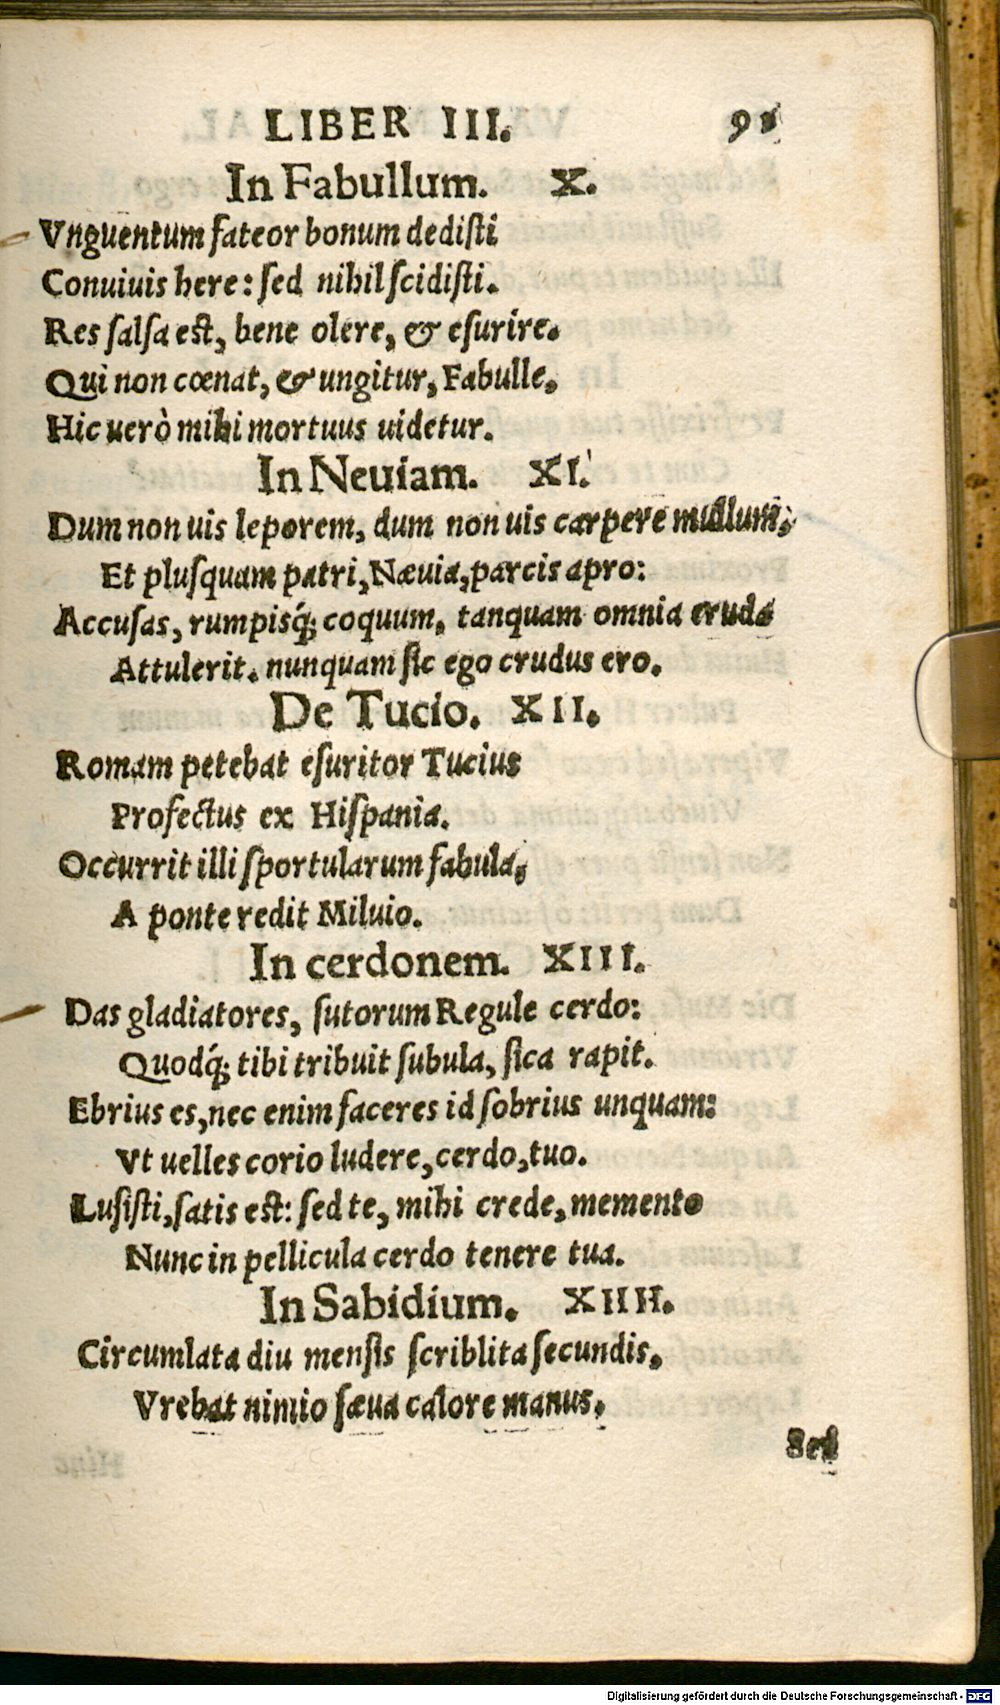 LIBER III.
In Fabullum. X.
Vnguentum fateor bonum dedisti
Conuiuis here: sed nihil scidisti.
Res salsa est, bene olere, & esurire.
Qui non cœnat, & ungitur, Fabulle,
Hic uerò mihi mortuus uidetur.
In Neuiam. XI.
Dum non uis leporem, dum non uis carpere mullum,
Et plusquam patri, Næuia, parcis apro:
Accusas, rumpisq́; coquum, tanquam omnia cruda
Attulerit. nunquam sic ego crudus ero.
De Tucio. XII.
Romam petebat esuritor Tucius
Profectus ex Hispania.
Occurrit illi sportularum fabula,
A ponte redit Miluio.
In cerdonem. XIII.
Das gladiatores, sutorum Regule cerdo:
Quodq́; tibi tribuit subula, sica rapit.
Ebrius es, nec enim faceres id sobrius unquam:
Vt uelles corio ludere, cerdo, tuo.
Lusisti, satis est: sed te, mihi crede, memento
Nunc in pellicula cerdo tenere tua.
In Sabidium. XIIII.
Circumlata diu mensis scriblita secundis,
Vrebat nimio sæua calore manus.
Sed
Digitalisierung gefördert durch die Deutsche Forschungsgemeinschaft - DFG